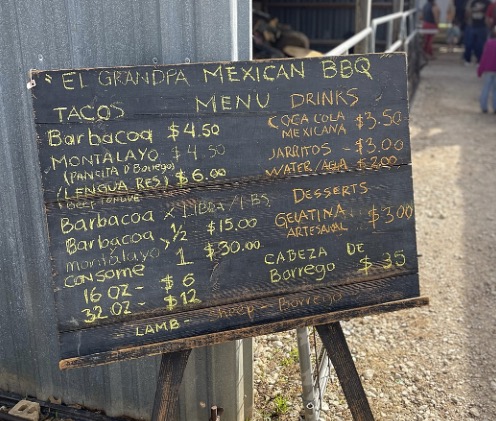 "EL GRANDPA MEXICAN BBQ
MENU
TACOS
Barbacoa $4.50
MONTALAYO $4.50
(PANCITA D' Borrego)
(LENGUA RES) $6.00
*Beef TONGUE
Barbacoa x LIBRA/LBS
Barbacoa > 1/2 $15.00
montalayo 1 $30.00
CONSOME
16 OZ - $6
32 OZ - $12
LAMB - Sheep - Borrego
DRINKS
COCA COLA
MEXICANA - $3.50
JARRITOS - $3.00
WATER/AGUA $2.00
DESSERTS
GELATINA
ARTESANAL $3.00
CABEZA DE
Borrego $35